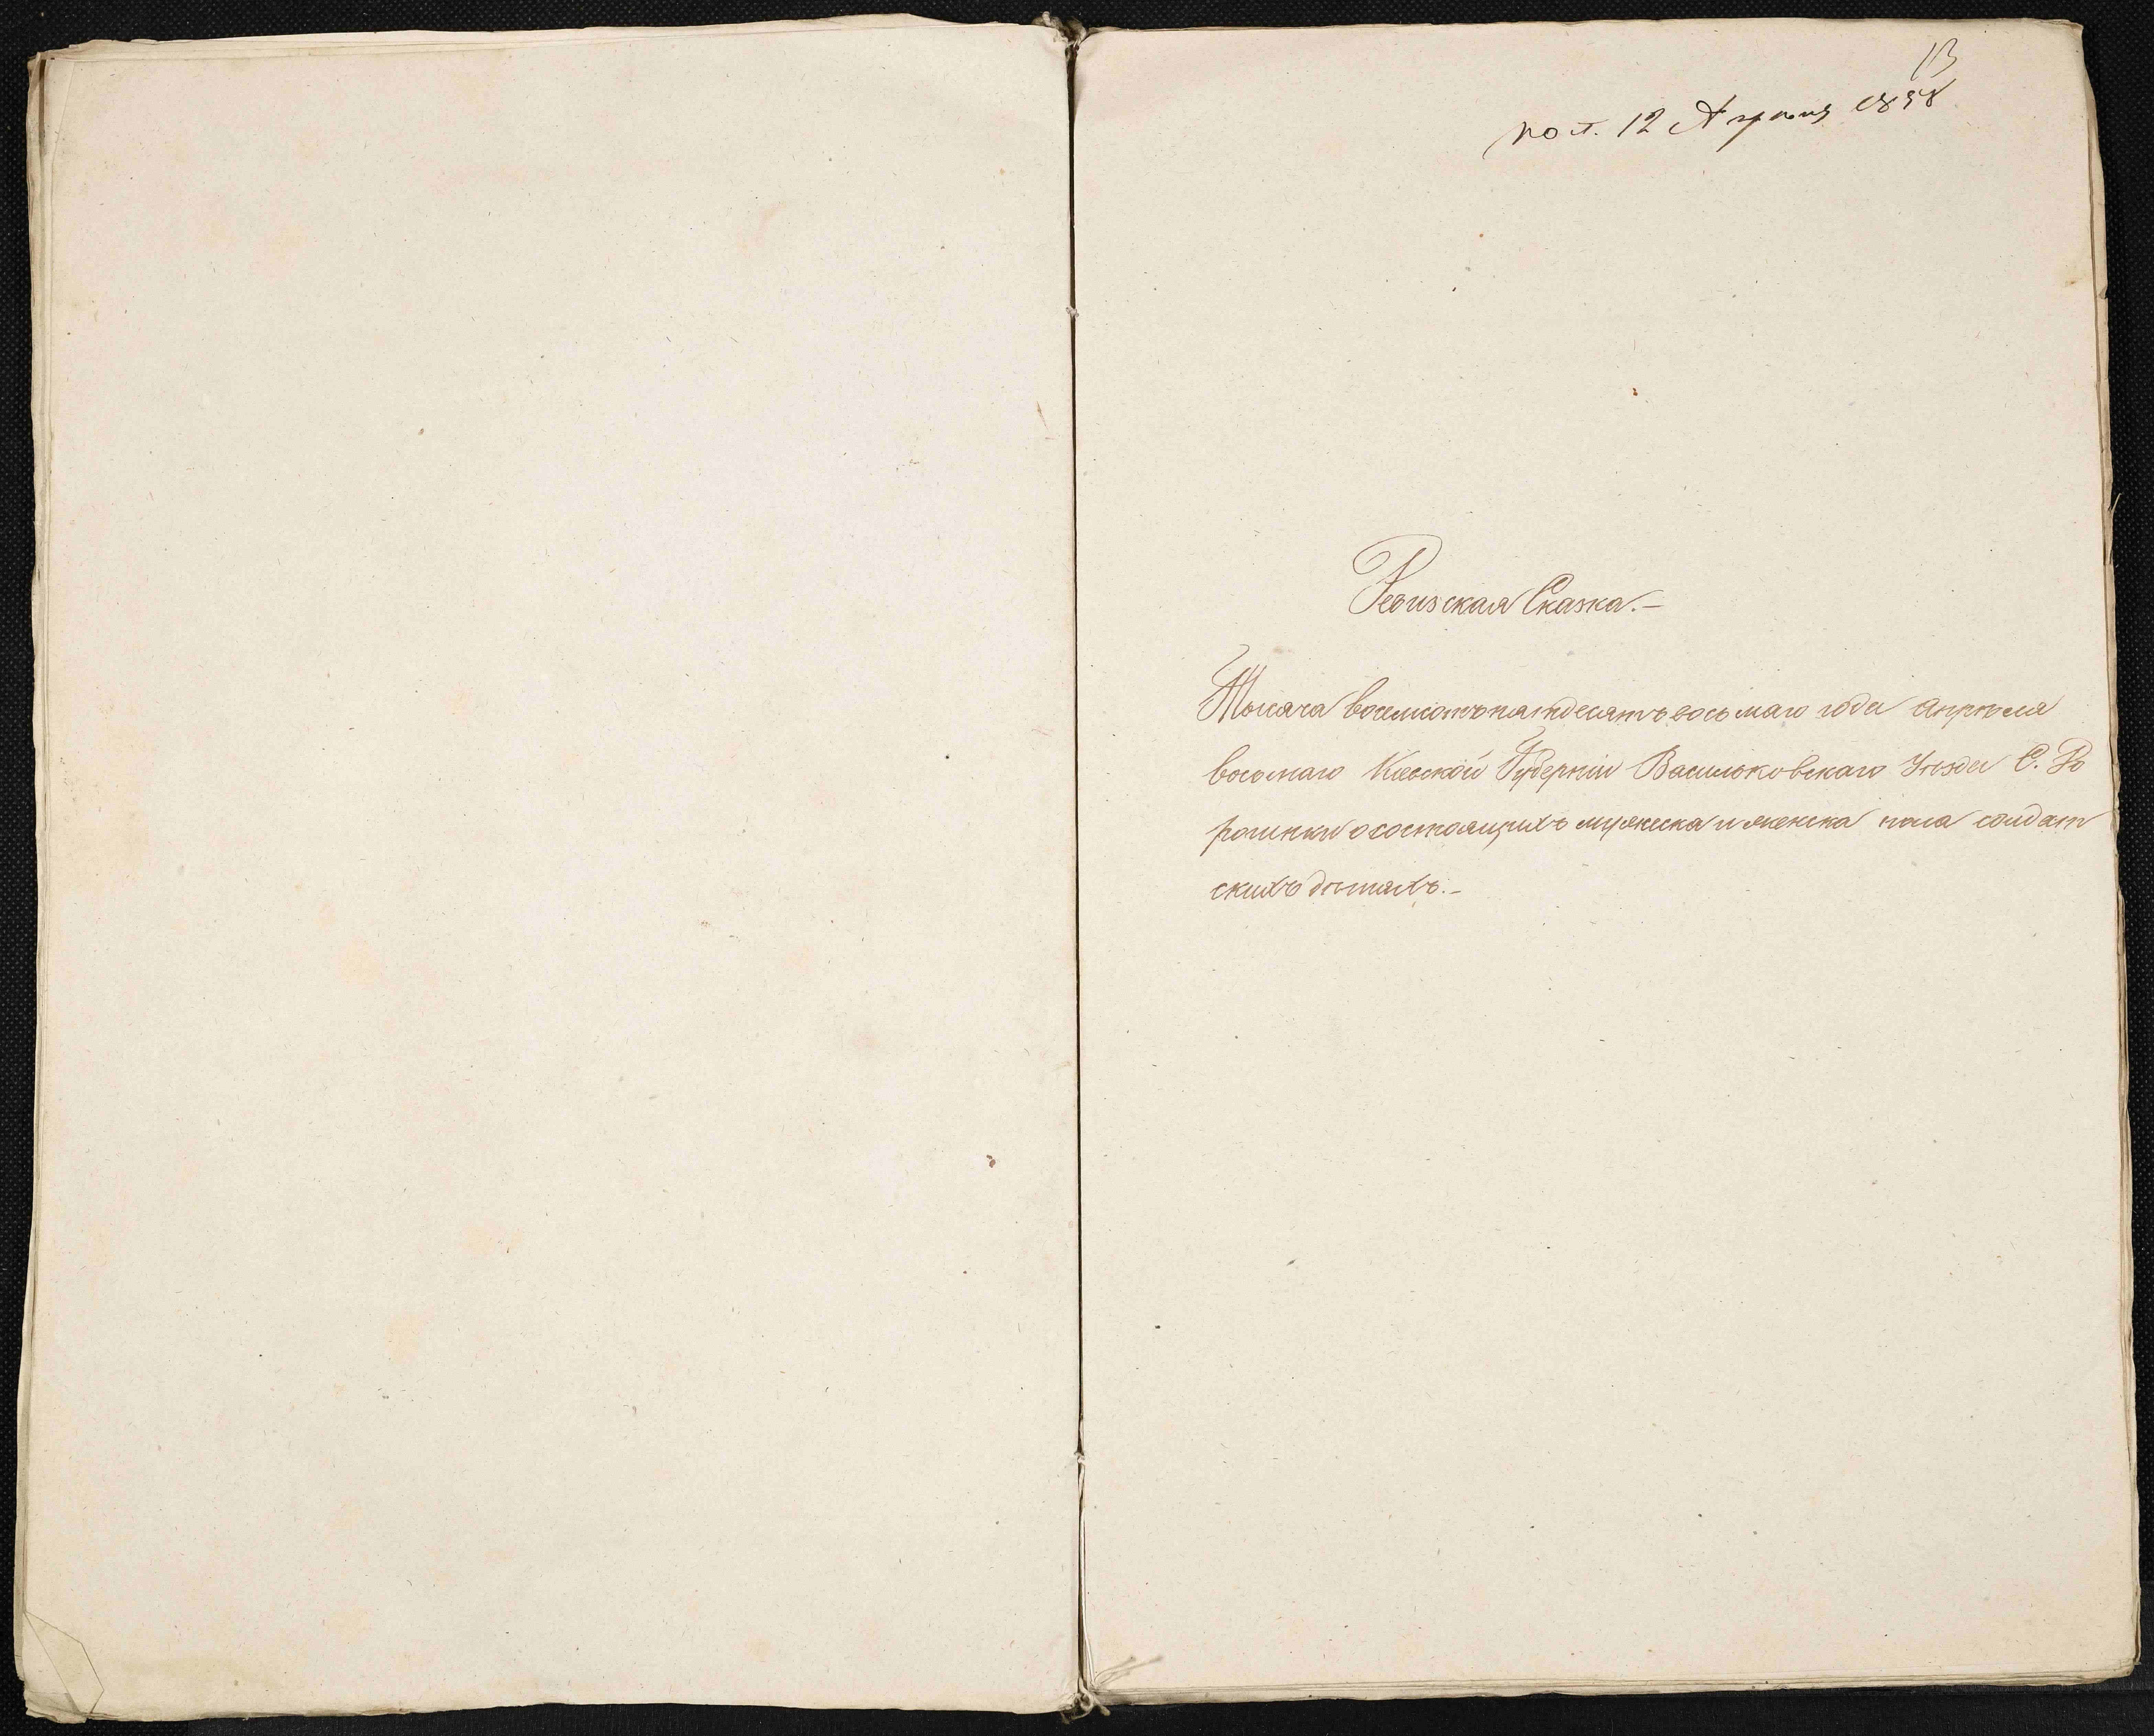 13
пол. 12 Апрѣля 1858
Ревизская Сказка.–
Тысяча восемсотъ пятдесятъ восьмаго года Апрѣля
восьмаго Кіевской Губерніи Васильковскаго Уѣзда С.
о состоящихъ мужеска и женска пола солдат
скихъ дѣтяхъ.–